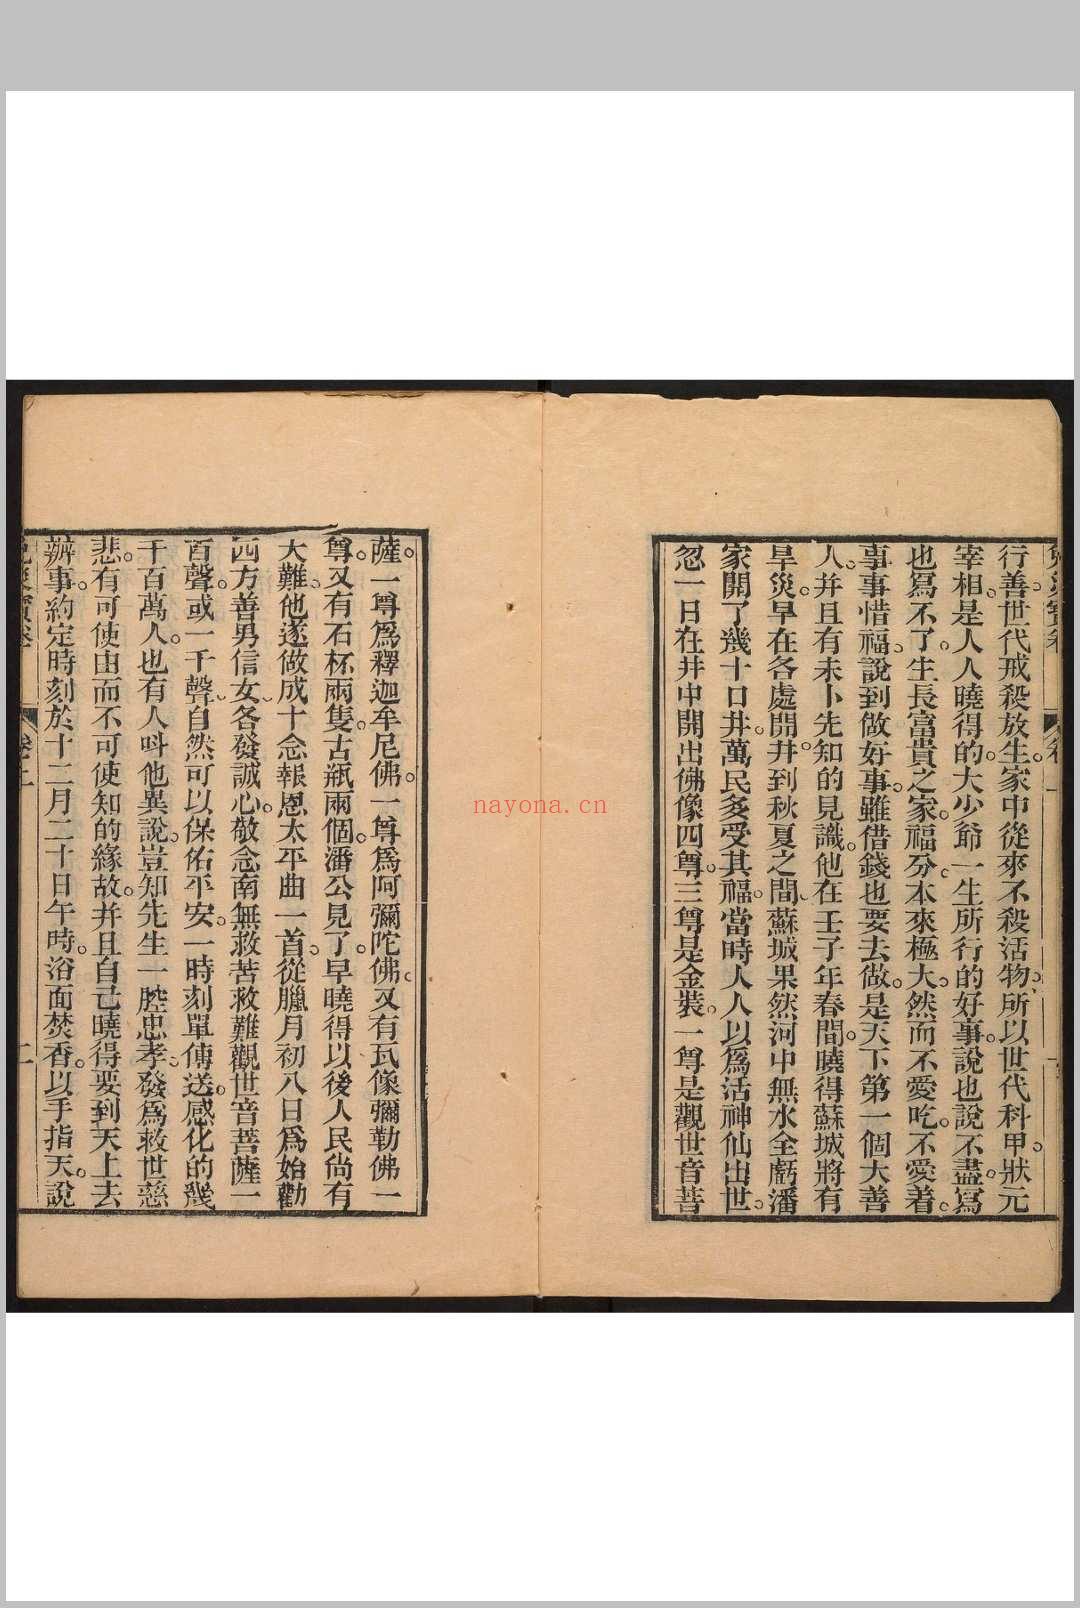 行善。世代戒殺放生。家中從來不殺活物。所以世代科甲。狀元
宰相。是人人曉得的。大少爺一生所行的好事。說也說不盡。寫
也寫不了。生長富貴之家。福分本來極大。然而不愛吃。不愛着。
事事惜福。說到做好事。雖借錢也要去做。是天下第一個大善
人。并且有未卜先知的見識。他在壬子年春間。曉得蘇城將有
旱災。早在各處開井。到秋夏之間。蘇城果然河中無水。全虧潘
家開了幾十口井。萬民多受其福。當時人人以爲活神仙出世。
忽一日在井中開出佛像四尊。三尊是金裝。一尊是觀世音菩
薩。一尊爲釋迦牟尼佛。一尊爲阿彌陀佛。又有瓦像彌勒佛一
尊。又有石杯兩隻。古瓶兩個。潘公見了。早曉得以後人民尙有
大難。他遂做成十念報恩太平曲一首。從臘月初八日爲始。勸
四方善男信女。各發誠心。敬念南無救苦救難觀世音菩薩一
百聲。或一千聲。自然可以保佑平安。一時刻單傳送。感化的幾
千百萬人。也有人呌他異說。豈知先生一腔忠孝。發爲救世慈
悲。有可使由而不可使知的緣故。并且自己曉得要到天上去
辦事。約定時刻。於十二月二十日午時。浴面焚香。以手指天。說
卷上
二
nayona.cn